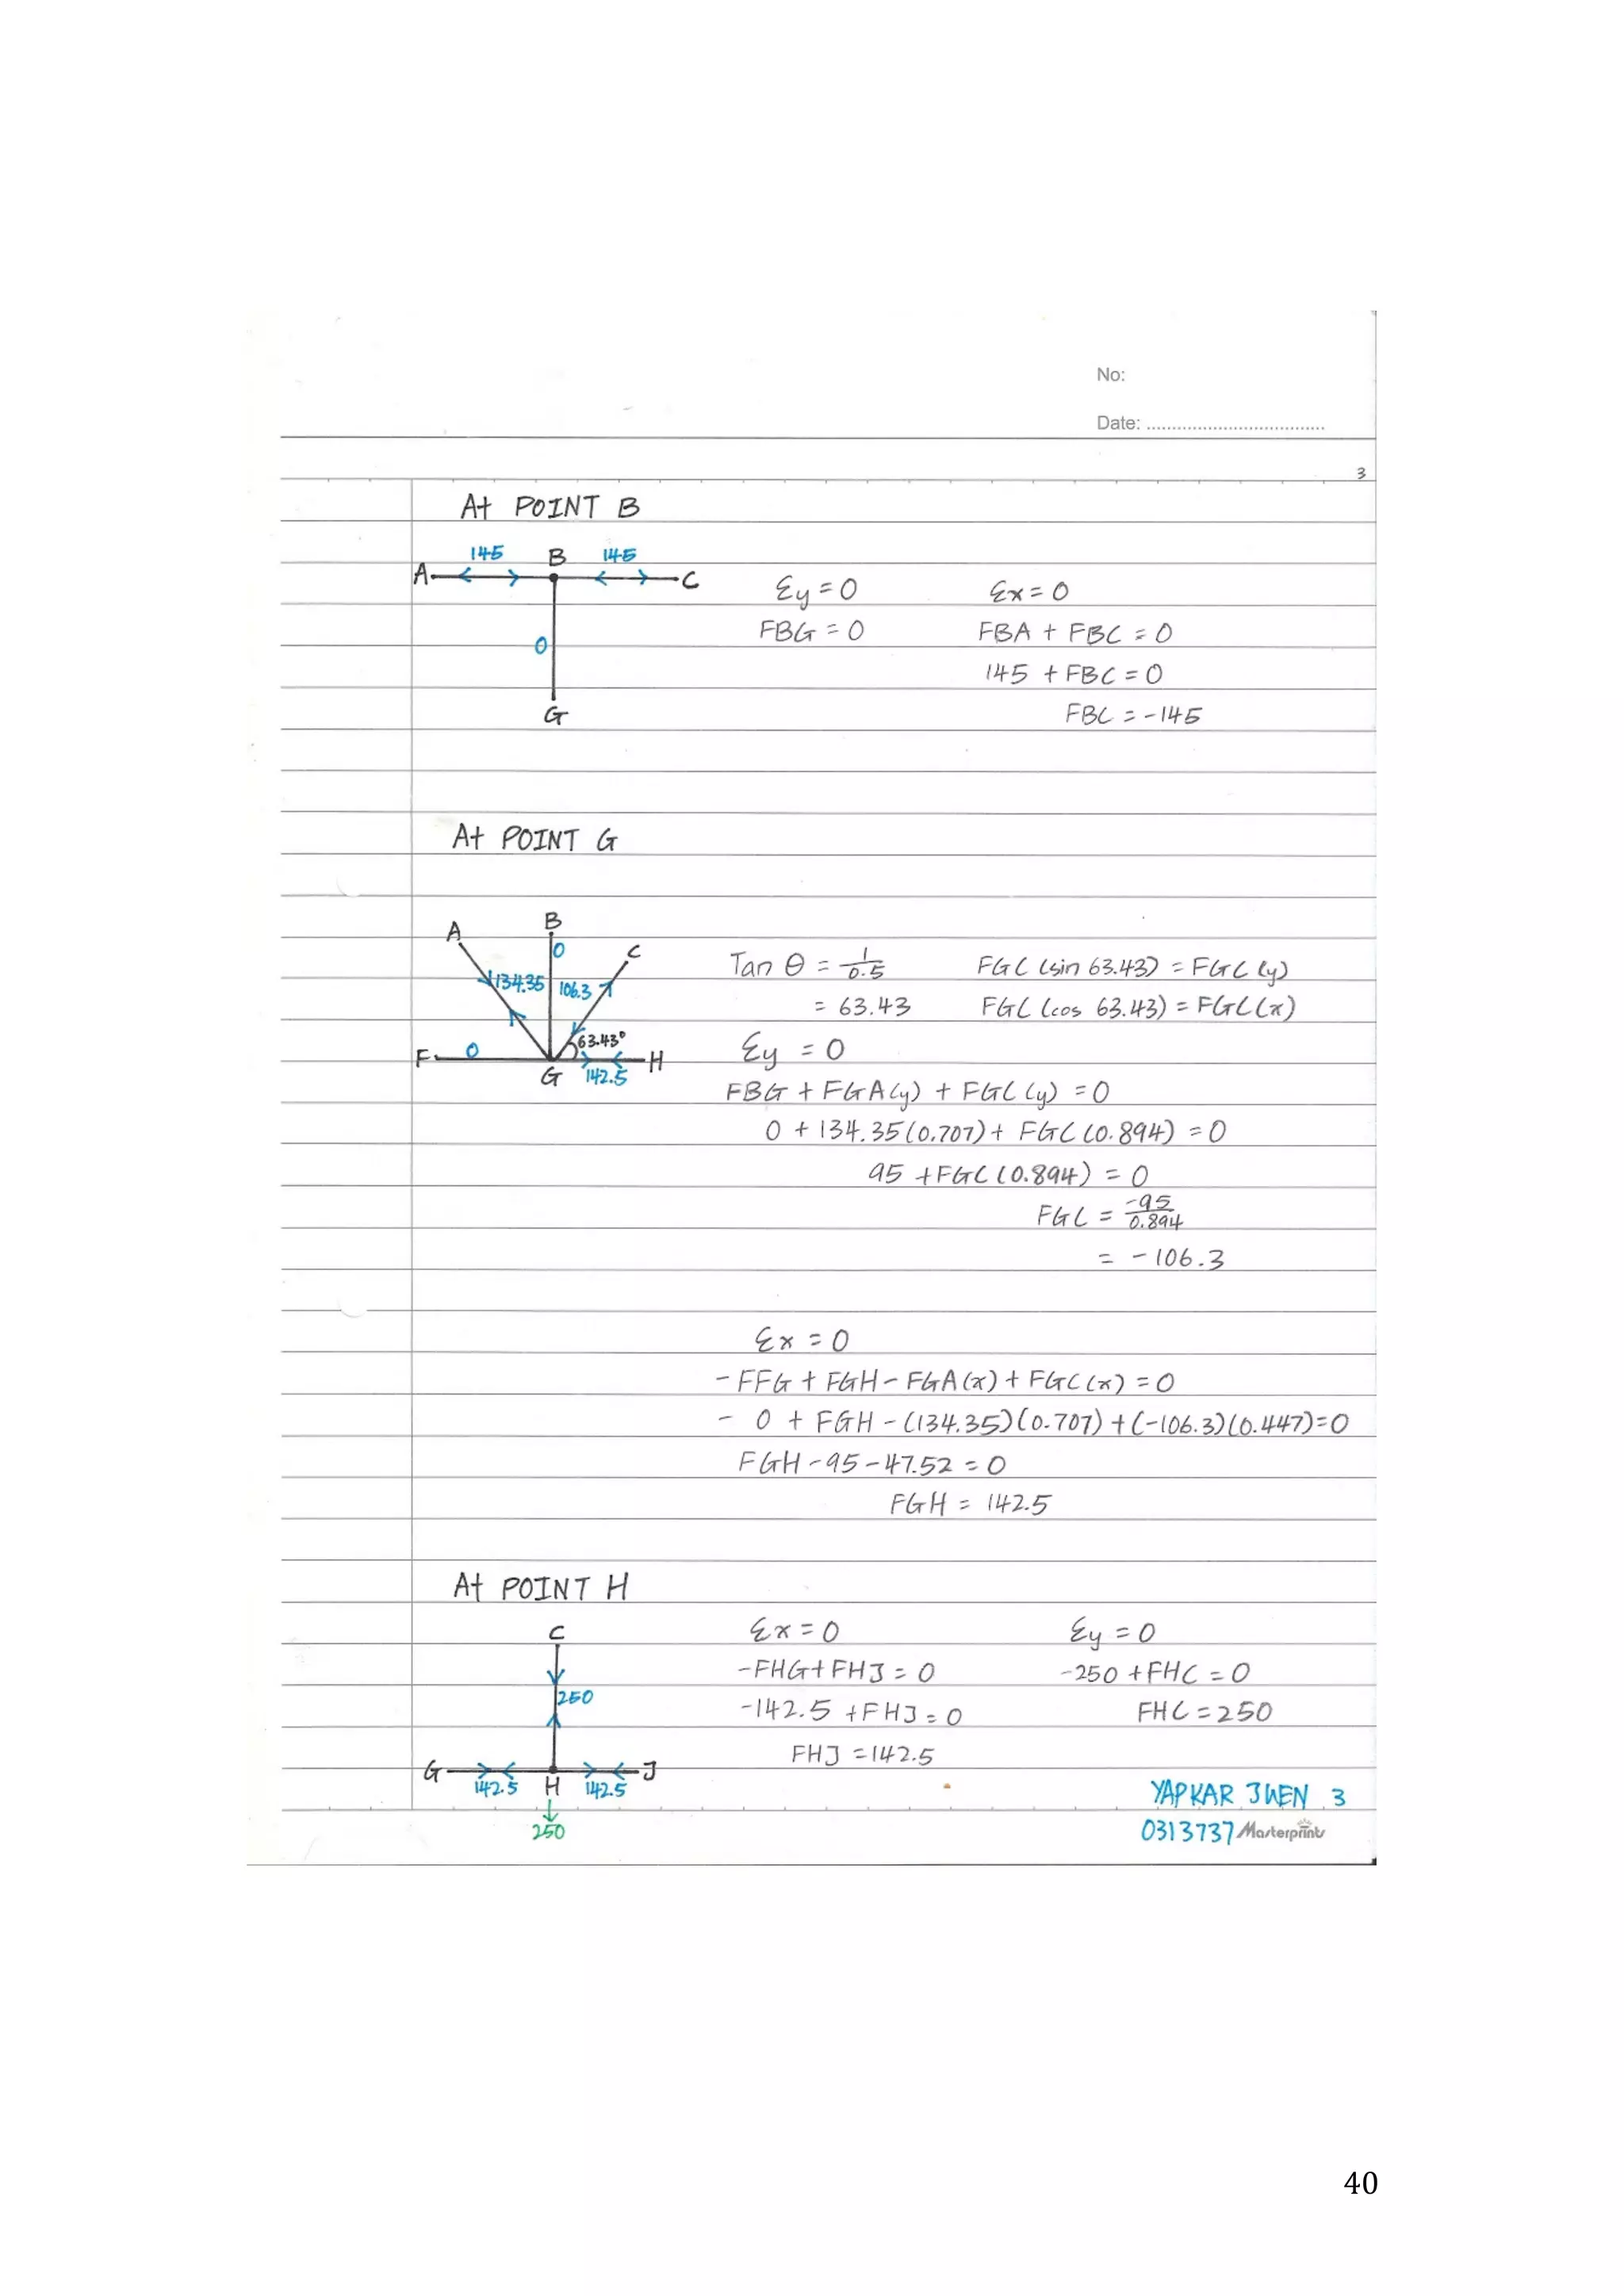 No:
Date: ..................................
3
At POINT B
145 B 145
A C
Σy = 0 Σx = 0
FBG = 0 FBA + FBC = 0
0
145 + FBC = 0
G
FBC = -145
At POINT G
A B C
0
134.35 106.3
63.43°
F 0 G 142.5 H
Tan θ = 1/0.5 FGC (sin 63.43) = FGC (y)
= 63.43 FGC (cos 63.43) = FGC(x)
Σy = 0
FBG + FGA(y) + FGC (y) = 0
0 + 134.35(0.707) + FGC (0.894) = 0
95 + FGC (0.894) = 0
FGC = -95/0.894
= -106.3
Σx = 0
- FFG + FGH - FGA(x) + FGC(x) = 0
- 0 + FGH - (134.35)(0.707) + (-106.3)(0.447)=0
FGH - 95 - 47.52 = 0
FGH = 142.5
At POINT H
C
250
G 142.5 H 142.5 J
250
Σx = 0 Σy = 0
-FHG + FHJ = 0 -250 + FHC = 0
-142.5 + FHJ = 0 FHC = 250
FHJ = 142.5
YAP KAR JWEN 3
0313737 Masterprint
40